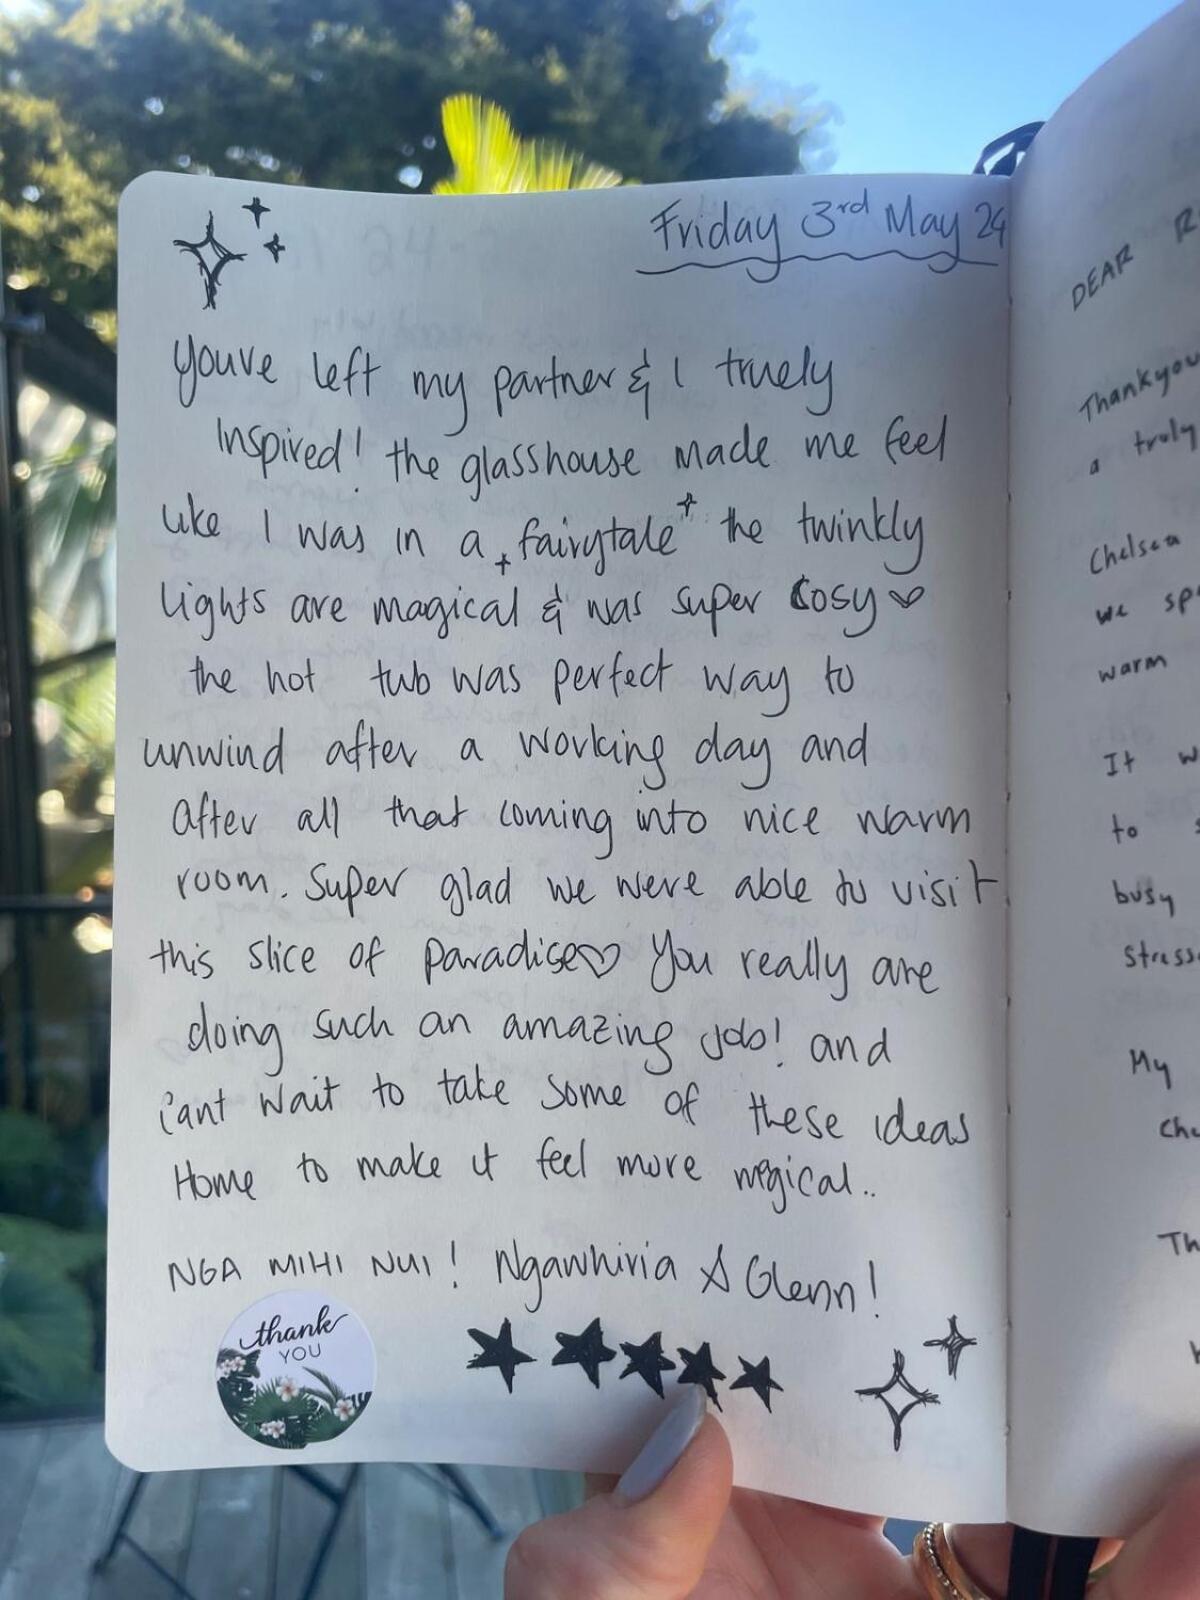 Friday 3rd May 24
Youve left my partner & I truely
Inspired! the glasshouse made me feel
like I was in a fairytale the twinkly
lights are magical & was super cosy
the hot tub was perfect way to
unwind after a working day and
after all that coming into nice warm
room. Super glad we were able to visit
this slice of paradise You really are
doing such an amazing job! and
cant wait to take some of these ideas
Home to make it feel more magical..
NGA MIHI NUI! Ngawhiria & Glenn!
thank
YOU
DEAR
Thankyou
a truly
Chelsea
we
warm
It
to
busy
My